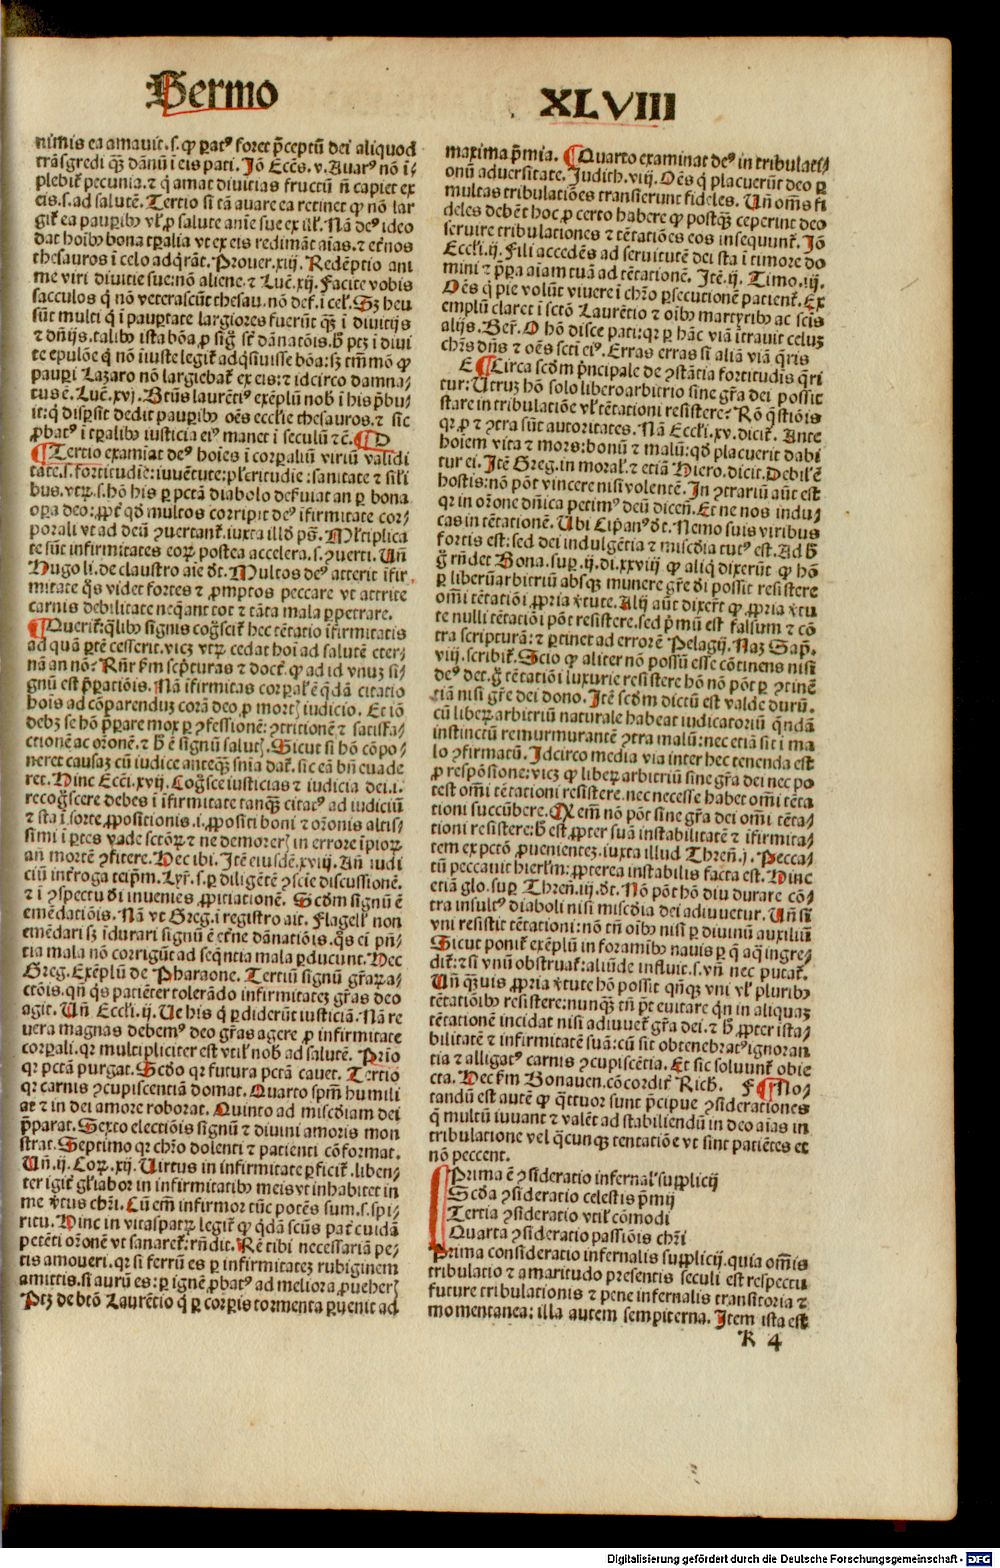 Sermo
XLVIII
nimis ea amauit.s.ꝙ ꝑatꝰ foret p̃ceptũ dei aliquod
trãsgredi qꝫ dãnũ ĩ eis pati. Jõ Ecčs.v. Auarꝰ nõ ĩ⸗
plebit᷑ pecunia.⁊ q̃ amat diuicias fructũ ñ capiet ex
eis.s.ad salutẽ. Tertio si tã auare ea retinet ꝙ nõ lar
git᷑ ea pauꝑibꝰ vl̓ ꝓ salute anĩe sue ex ĩl̓l. Nã deꝰ ideo
dat hoĩbꝰ bona tꝑalia vt ex eis redimãt aĩas.⁊ et̓nos
thesauros ĩ celo adq̃rãt. Prouer.xiij. Redẽptio ani
me viri diuitie sue:nõ aliene.⁊ Luč.xij. Facite vobis
sacculos q̃ nõ veterascũt thesau.nõ def.ĩ cel̓. Sꝫ heu
sũt multi q̃ ĩ pauꝑtate largiores fuerũt qꝫ ĩ diuitijs
⁊ dñijs.talibꝰ ista bõa ꝑ sig̃ s̃t dãnatõis.ḃ ptꝫ ĩ diui
te epulõe q̃ nõ ĩiuste legit᷑ adq̃siuisse bõa:sꝫ tm̃mõ ꝙ
pauꝑi Lazaro nõ largiebat᷑ ex eis:⁊ idcirco damna⸗
tus ẽ. Luč.xvj. Btũs laurẽtiꝰ exẽplũ nob̓ ĩ his p̃bu⸗
it:q̃ disꝑsit dedit pauꝑibꝰ oẽs ecclie thesauros.⁊ sic
ꝓbatꝰ ĩ tꝑalibꝰ iusticia eiꝰ manet ĩ seculũ ⁊č. ¶ D
¶ Tertio examĩat deꝰ hoies ĩ corꝑaliũ viriũ validi
tate.s.fortitudie:iuuẽtute:pl̓critudie:sanitate ⁊ sil̓i
bus.vtꝝ.s.hõ his ꝑ pctã diabolo defuiat an ꝑ bona
oꝑa deo:ꝓpt̓ qd̓ multos corripit deꝰ ĩfirmitate cor⸗
porali vt ad deũ ꝯuertant᷑.iuxta illd̓ pŝ. Ml̓tiplica
te sũt infirmitates eoꝝ postea accelera.s.ꝯuerti. Uñ
Hugo li.de claustro aĩe d̓t. Multos deꝰ atterit ĩfir⸗
mitate q̃s videt fortes ⁊ ꝓmptos peccare vt attrite
carnis debilitate neq̃ant tot ⁊ tãta mala ꝑpetrare.
¶ Querit᷑:q̃libꝰ signis cog̃scit᷑ hec tẽtatio ĩfirmitatis
ad quã ꝑtẽ cesserit.vicꝫ vtꝝ cedat hoĩ ad salutẽ eter⸗
nã an nõ? Rñr ẜm sc̃pturas ⁊ doct̓.ꝙ ad id vnuꝫ si⸗
gnũ est p̃ꝑatiõis. Nã ĩfirmitas corꝑal̓ ẽ q̃dã citatio
hoĩs ad cõparenduꝫ corã deo ꝑ mortꝫ iudicio. Et iõ
debꝫ se hõ p̃ꝑare mox ꝑ ꝯfessionẽ:ꝯtritionẽ ⁊ satisfa⸗
ctionẽ ac or̃onẽ.⁊ ḃ ẽ signũ salutꝫ. Sicut si hõ cõpo⸗
neret causaꝫ cũ iudice anteqꝫ snĩa dat᷑.sic eã bñ euade
ret. Hinc Ecc̃i.xvij. Cog̃sce iusticias ⁊ iudicia dei.i.
recog̃scere debes ĩ ĩfirmitate tanqꝫ citatꝰ ad iudiciũ
⁊ sta ĩ sorte ꝓpositionis.i.ꝓpositi boni ⁊ or̃onis altis⸗
simi ĩ ꝑtes vade sctõꝝ ⁊ ne demorerꝫ in errore ĩpioꝝ
añ mortẽ ꝯfitere. Hec ibi. Jtẽ eiusdẽ.xviij. Añ iudi
ciũ int̓roga teip̃m. Lyr̃.s.ꝑ diligẽtẽ ꝯscie discussionẽ.
⁊ ĩ ꝯspectu dĩ inuenies ꝓpiciationẽ. Scd̓m signũ ẽ
emẽdatiõis. Nã vt Greg.ĩ registro ait. Flagell̓ non
emẽdari sꝫ ĩdurari signũ ẽ et̓ne dãnatiõis.q̃s ei pñ⸗
tia mala nõ corrigũt ad seq̃ntia mala ꝑducunt. Hec
Greg. Exẽplũ de Pharaone. Tertiũ signũ gr̃aꝝ a⸗
ctõis.qñ q̃s patiẽter tolerãdo infirmitateꝫ gr̃as deo
agit. Uñ Eccl̓i.ij. Ue his q̃ ꝑdiderũt iusticiã. Nã re
uera magnas debemꝰ deo gr̃as agere ꝓ infirmitate
corꝑali.qꝛ multipliciter est vtil̓ nob̓ ad salutẽ. Prĩo
qꝛ pctm̃ purgat. Scd̓o qꝛ futura pctã cauet. Tertio
qꝛ carnis ꝯcupiscentiã domat. Quarto sp̃m humili
at ⁊ in dei amore roborat. Quinto ad miscd̓iam dei
p̃parat. Sexto electiõis signũ ⁊ diuini amoris mon
strat. Septimo qꝛ chr̃o dolenti ⁊ patienti cõformat.
Uñ.ij. Coꝝ.xij. Uirtus in infirmitate ꝑficit᷑.liben⸗
ter igit᷑ gl̓iabor in infirmitatibꝰ meis vt inhabitet in
me v̓tus chr̃i. Cũ em̃ infirmor tũc potẽs sum.s.spi⸗
ritu. Hinc in vitaspatꝝ legit᷑ ꝙ q̃dã scũs pat̓ cuidã
petẽti or̃onẽ vt sanaret᷑:rñdit. Rẽ tibi necessariã pe⸗
tis amoueri.qꝛ si ferrũ es ꝑ infirmitateꝫ rubiginem
amittis.si aurũ es:ꝑ ignẽ ꝓbatꝰ ad meliora ꝓueherꝫ
Ptꝫ de btõ Laurẽtio q̃ ꝑ corꝑis tormenta ꝑuenit ad
maxima p̃mia. ¶ Quarto examinat deꝰ in tribulati⸗
onũ aduersitate. Judith.viij. Oẽs q̃ placuerũt deo ꝑ
multas tribulatiões transierunt fideles. Uñ om̃s fi
deles debẽt hoc ꝓ certo habere ꝙ postqꝫ ceperint deo
seruire tribulationes ⁊ tẽtatiões eos insequunt᷑. Jõ
Eccl̓i.ij. Fili accedẽs ad seruitutẽ dei sta ĩ timore do
mini ⁊ p̃ꝑa aĩam tuã ad tẽtationẽ. Jtẽ.ij. Timo.iij.
Oẽs q̃ pie volũt viuere ĩ chr̃o ꝑsecutionẽ patient᷑. Ex
emplũ claret ĩ sctõ Laurẽtio ⁊ oĩbꝰ martyribꝰ ac scĩs
alijs. Ber̃. O hõ disce pati:qꝛ ꝑ hãc viã ĩtrauit celuꝫ
chr̃s dñs ⁊ oẽs sctĩ eiꝰ. Erras erras si aliã viã q̃ris
E ¶ Circa scd̓m p̃ncipale de ꝯstãtia fortitudis q̃ri
tur: Utruꝫ hõ solo liberoarbitrio sine gr̃a dei possit
stare in tribulatiõe vl̓ tẽtationi resistere? Rõ q̃stiõis
qꝛ ꝓ ⁊ ꝯtra sũt autoritates. Nã Eccl̓i.xv.dicit᷑. Ante
hoiem vita ⁊ mors:bonũ ⁊ malũ:qd̓ placuerit dabi
tur ei. Jtẽ Greg.in moral̓.⁊ etiã Hiero.dicit. Debil̓ ẽ
hostis:nõ põt vincere nisi volentẽ. Jn ꝯtrariũ aũt est
qꝛ in or̃one dñica petimꝰ deũ diceñ. Et ne nos indu⸗
cas in tẽtationẽ. Ubi Cip̃anꝰ d̓t. Nemo suis viribus
fortis est:sed dei indulgẽtia ⁊ miscd̓ia tutꝰ est. Ad ḃ
g̃ rñdet Bona.suꝑ.ij.di.xxviij ꝙ aliq̃ dixerũt ꝙ hõ
ꝑ liberũarbitriũ absqꝫ munere gr̃e dĩ possit resistere
om̃i tẽtatiõi ꝓpria v̓tute. Alij aũt dixer̃t ꝙ ꝓpria v̓tu
te nulli tẽtatiõi põt resistere.sed p̃mũ est falsum ⁊ cõ
tra scripturã:⁊ ꝑtinet ad errorẽ Pelagij. Naꝫ Sap̃.
viij.scribit᷑. Scio ꝙ aliter nõ possũ esse cõtinens nisi
deꝰ det.g̃ tẽtatiõi luxurie resistere hõ nõ põt ꝑ ꝯtinẽ
tiã nisi gr̃e dei dono. Jtẽ scd̓m dictũ est valde durũ.
cũ liberꝫ arbitriũ naturale habeat iudicatoriũ q̃ndã
instinctũ remurmurantẽ ꝯtra malũ:nec etiã sit ĩ ma
lo ꝯfirmatũ. Jdcirco media via inter hec tenenda est
ꝓ respõsione:vicꝫ ꝙ liberꝫ arbitriũ sine gr̃a dei nec po
test om̃i tẽtationi resistere.nec necesse habet om̃i tẽta
tioni succũbere. Qꝛ em̃ nõ põt sine gr̃a dei om̃i tẽta⸗
tioni resistere:ḃ est ꝓpter suã instabilitatẽ ⁊ ĩfirmita⸗
tem ex pctõ ꝓuenienteꝫ.iuxta illud Threñ.j. Pecca⸗
tũ peccauit hierl̓m:ꝓpterea instabilis facta est. Hinc
etiã glo.suꝑ Threñ.iij.d̓t. Nõ põt hõ diu durare cõ⸗
tra insultꝰ diaboli nisi miscd̓ia dei adiuuetur. Uñ si
vni resistit tẽtationi:nõ tñ oĩbꝰ nisi ꝑ diuinũ auxiliũ
Sicut ponit᷑ exẽplũ in foramĩbꝰ nauis ꝑ q̃ aq̃ ingre⸗
dit᷑:⁊ si vnũ obstruat᷑:aliũde influit.s.vñ nec putat᷑.
Uñ qꝫuis ꝓpria v̓tute hõ possit qñqꝫ vni vl̓ pluribꝰ
tẽtatiõibꝰ resistere:nunqꝫ tñ p̃t euitare q̃n in aliquaꝫ
tẽtationẽ incidat nisi adiuuet᷑ gr̃a dei.⁊ ḃ ꝓpter ista⸗
bilitatẽ ⁊ infirmitatẽ suã:cũ sit obtenebratꝰ ignoran
tia ⁊ alligatꝰ carnis ꝯcupiscẽtia. Et sic soluunt᷑ obie
cta. Hec ẜm Bonauen.cõcordit᷑ Rich. F ¶ No⸗
tandũ est autẽ ꝙ q̃ttuor sunt p̃cipue ꝯsiderationes
q̃ multũ iuuant ⁊ valẽt ad stabiliendũ in deo aĩas in
tribulatione vel q̃cunqꝫ tentatiõe vt sint patiẽtes et
nõ peccent.
Prima ẽ ꝯsideratio infernal̓ supplicij
Scd̓a ꝯsideratio celestis p̃mij
Tertia ꝯsideratio vtil̓ cõmodi
Quarta ꝯsideratio passiõis chr̃i
Prima consideratio infernalis supplicij.quia om̃is
tribulatio ⁊ amaritudo presentis seculi est respectu
future tribulationis ⁊ pene infernalis transitoria ⁊
momentanea:illa autem sempiterna. Jtem ista est
K 4
Digitalisierung gefördert durch die Deutsche Forschungsgemeinschaft - DFG